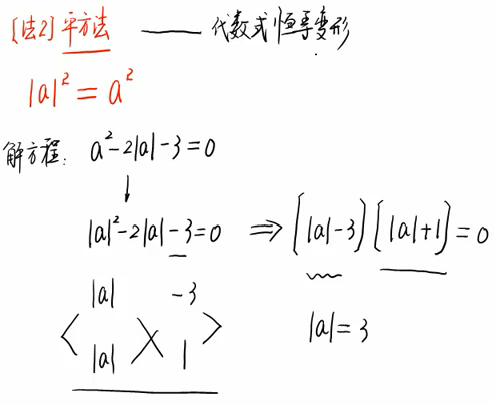 [法2] 平方法 —— 代数式恒等变形
|a|² = a²
解方程: a²-2|a|-3=0
↓
|a|²-2|a|-3=0 ⇒ [|a|-3][|a|+1]=0
|a| -3
|a| 1
|a|=3